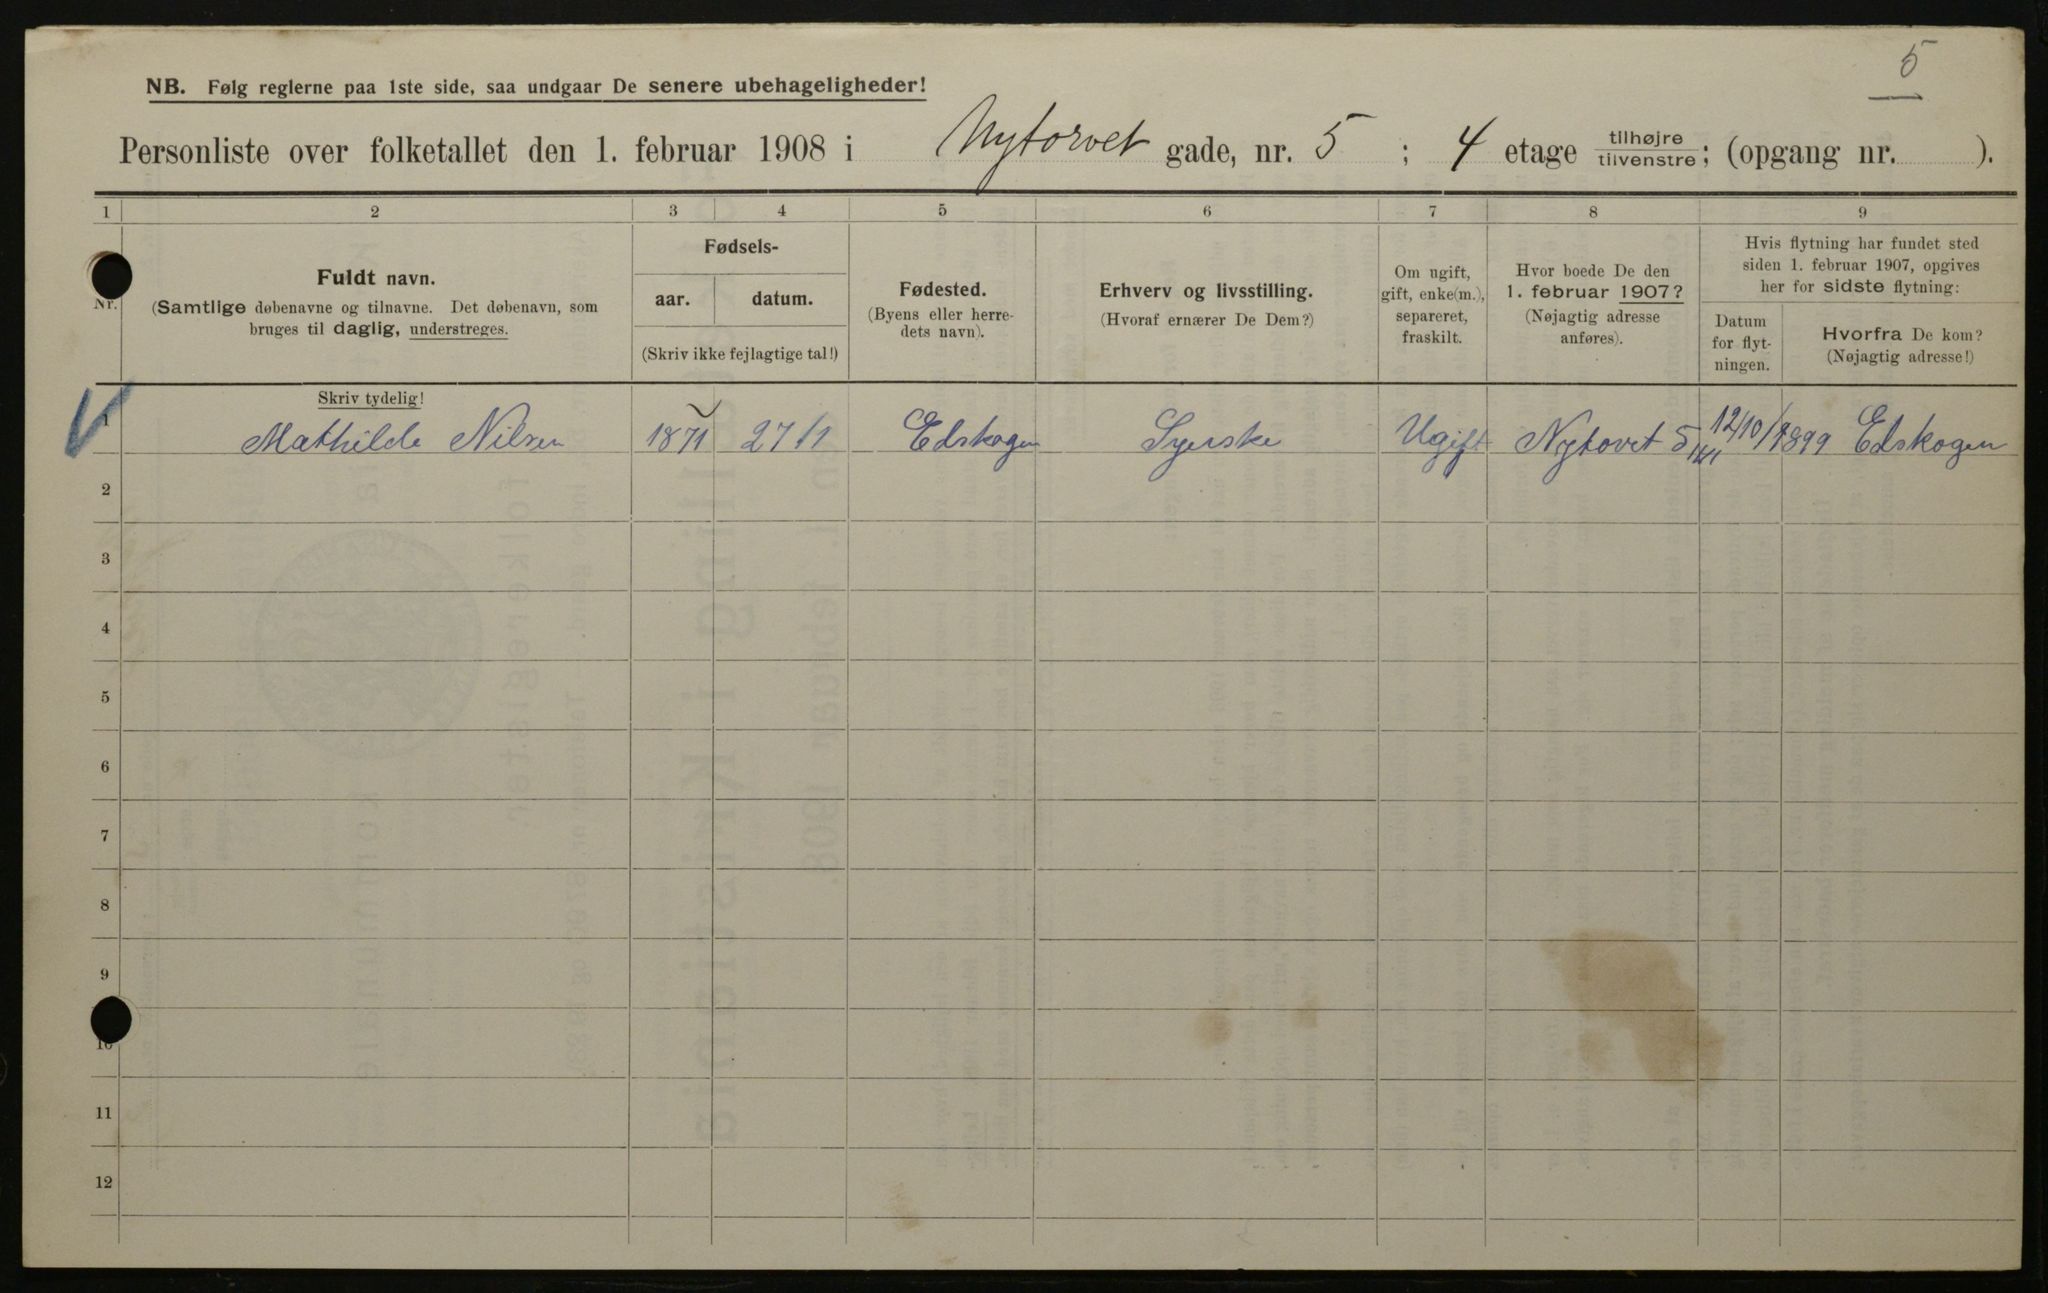 5
NB. Følg reglerne paa 1ste side, saa undgaar De senere ubehageligheder!
Personliste over folketallet den 1. februar 1908 i Nytorvet gade, nr. 5 ; 4 etage tilhøjre/tilvenstre; (opgang nr. ).
1 2 3 4 5 6 7 8 9
Nr.
Fuldt navn.
(Samtlige døbenavne og tilnavne. Det døbenavn, som
bruges til daglig, understreges.
Fødsels-
aar. datum.
(Skriv ikke fejlagtige tal!)
Fødested.
(Byens eller herre-
dets navn).
Erhverv og livsstilling.
(Hvoraf ernærer De Dem?)
Om ugift,
gift, enke(m.),
separeret,
fraskilt.
Hvor boede De den
1. februar 1907?
(Nøjagtig adresse
anføres).
Hvis flytning har fundet sted
siden 1. februar 1907, opgives
her for sidste flytning:
Datum
for flyt-
ningen.
Hvorfra De kom?
(Nøjagtig adresse!)
Skriv tydelig!
1 Mathilde Nilsen 1871 27/1 Edskogen Syerske Ugift Nytovet 5 12/10/1899 Edskogen
2
3
4
5
6
7
8
9
10
11
12